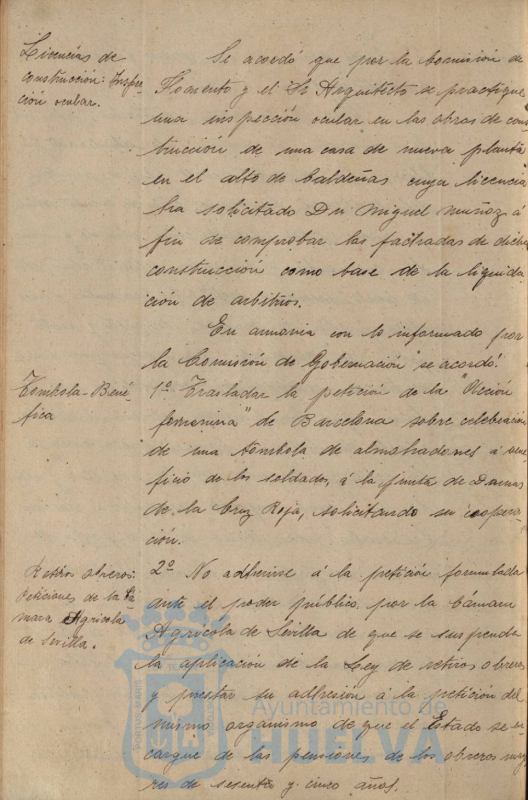 Licencias de
construcción: Inspec-
ción ocular.
Se acordó que por la Comisión de
Fomento y el Sr Arquitecto se practique
una inspección ocular en las obras de cons
trucción de una casa de nueva planta
en el alto de
cuya licencia
ha solicitado Dn Miguel Muñoz á
fin de comprobar las fachadas de dicha
construcción como base de la liquida
ción de arbitrios.
En armonia con lo informado por
la Comisión de Gobernación se acordó:
Tombola Bené-
fica
1º Trasladar la petición de la "Acción
femenina" de Barcelona sobre celebración
de una tómbola de almohadones á bene
ficio de los soldados, á la Junta de Damas
de la Cruz Roja, solicitando su coopera-
ción.
Retiros obreros:
Peticiones de la Cá
mara Agricola
de Sevilla.
2º No adherirse á la petición formulada
ante el poder público por la Cámara
Agrícola de Sevilla de que se suspenda
la aplicación de la Ley de retiros obreros
y prestar su adhesión á la petición del
mismo organismo de que el Estado se en
cargue de las pensiones de los obreros mayo
res de sesenta y cinco años.
Ayuntamiento de
HUELVA